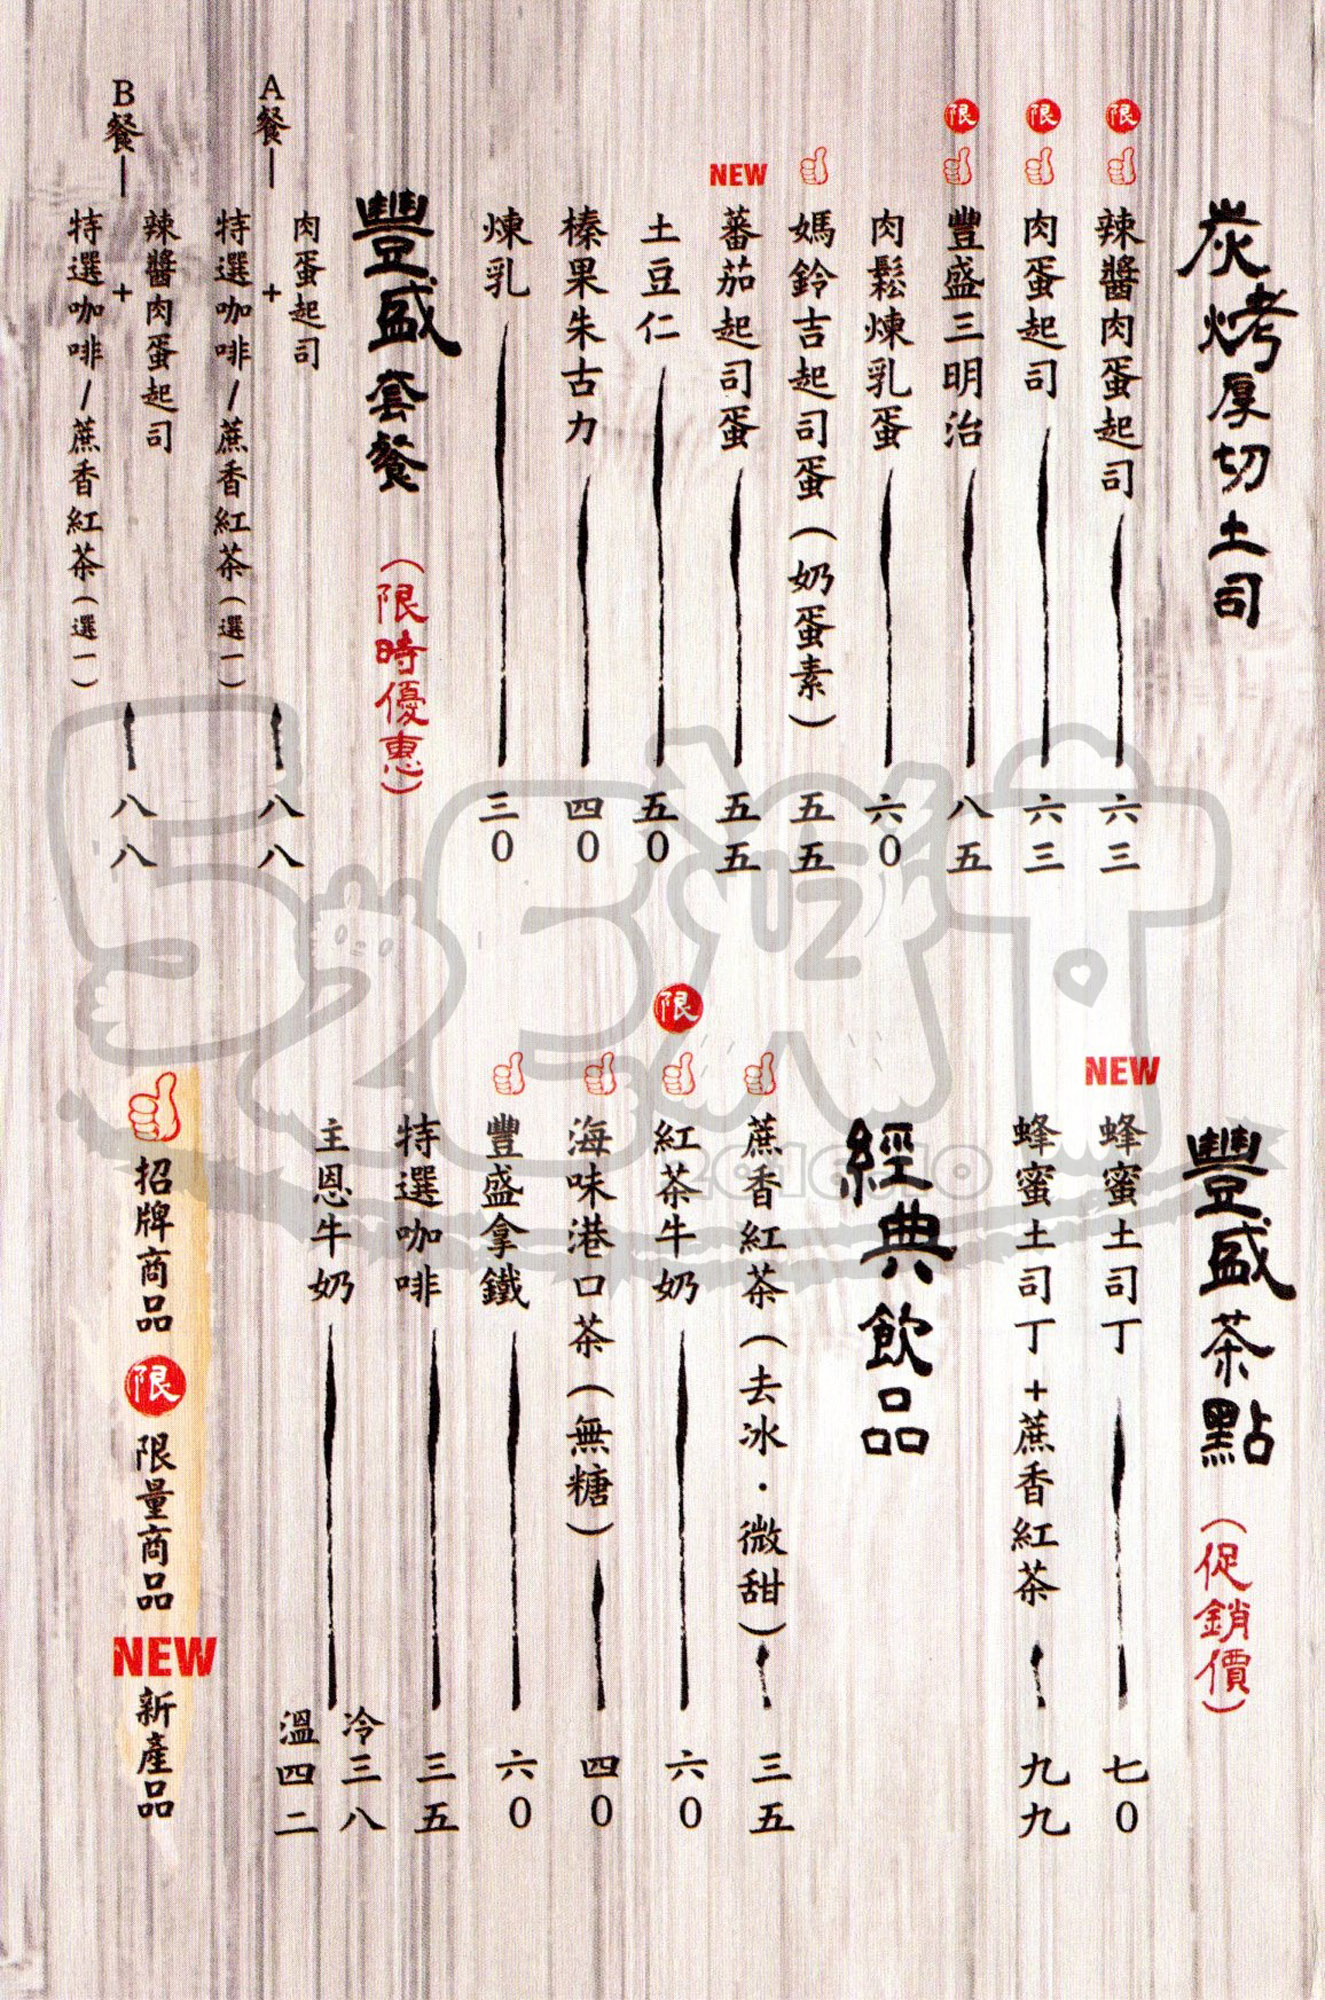 炭烤厚切土司
限 辣醬肉蛋起司 六三
限 肉蛋起司 六三
限 豐盛三明治 八五
肉鬆煉乳蛋 六0
媽鈴吉起司蛋(奶蛋素) 五五
NEW 蕃茄起司蛋 五五
土豆仁 五0
榛果朱古力 四0
煉乳 三0
豐盛套餐(限時優惠)
A餐—肉蛋起司
+
特選咖啡/蔗香紅茶(選一) 八八
B餐—辣醬肉蛋起司
+
特選咖啡/蔗香紅茶(選一) 八八
豐盛茶點(促銷價)
NEW 蜂蜜土司丁 七0
蜂蜜土司丁+蔗香紅茶 九九
經典飲品
蔗香紅茶(去冰·微甜) 三五
限 紅茶牛奶 六0
海味港口茶(無糖) 四0
豐盛拿鐵 六0
特選咖啡 三五
主恩牛奶 冷三八
溫四二
招牌商品 限 限量商品 NEW 新產品
52吃EAT
2016.10